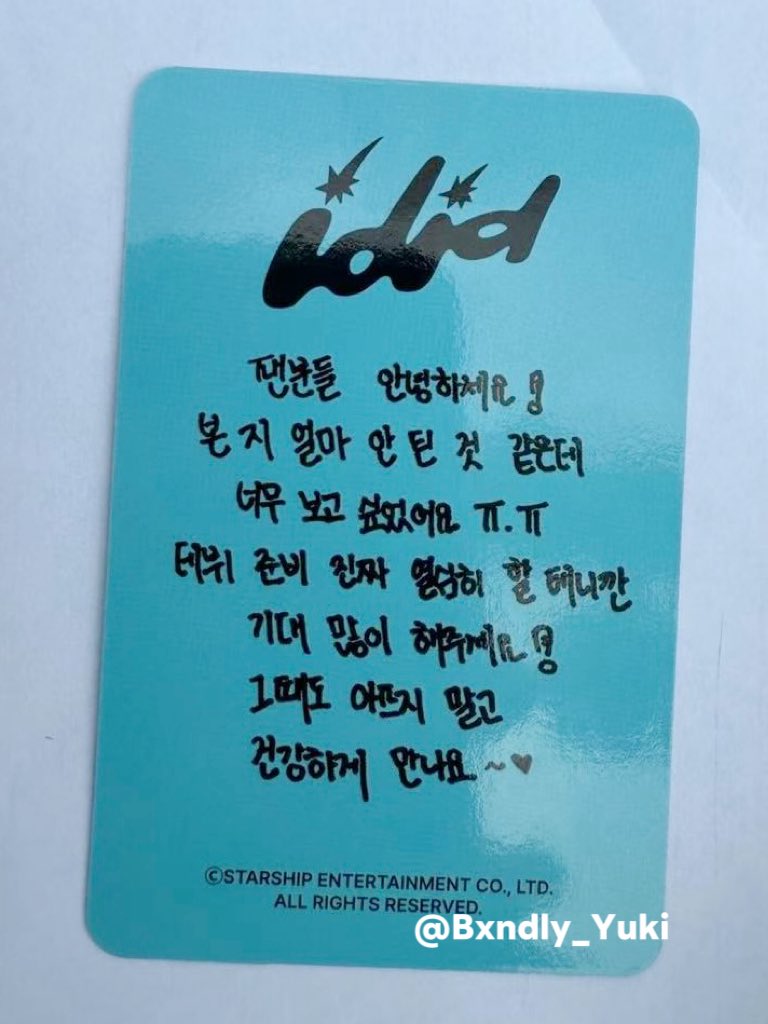 idid
팬분들 안녕하세요!
본 지 얼마 안 된 것 같은데
너무 보고 싶었어요 ㅠ.ㅠ
데뷔 준비 진짜 열심히 할 테니깐
기대 많이 해주세요!
그때도 아프지 말고
건강하게 만나요~♥
©STARSHIP ENTERTAINMENT CO., LTD.
ALL RIGHTS RESERVED.
@Bxndly_Yuki